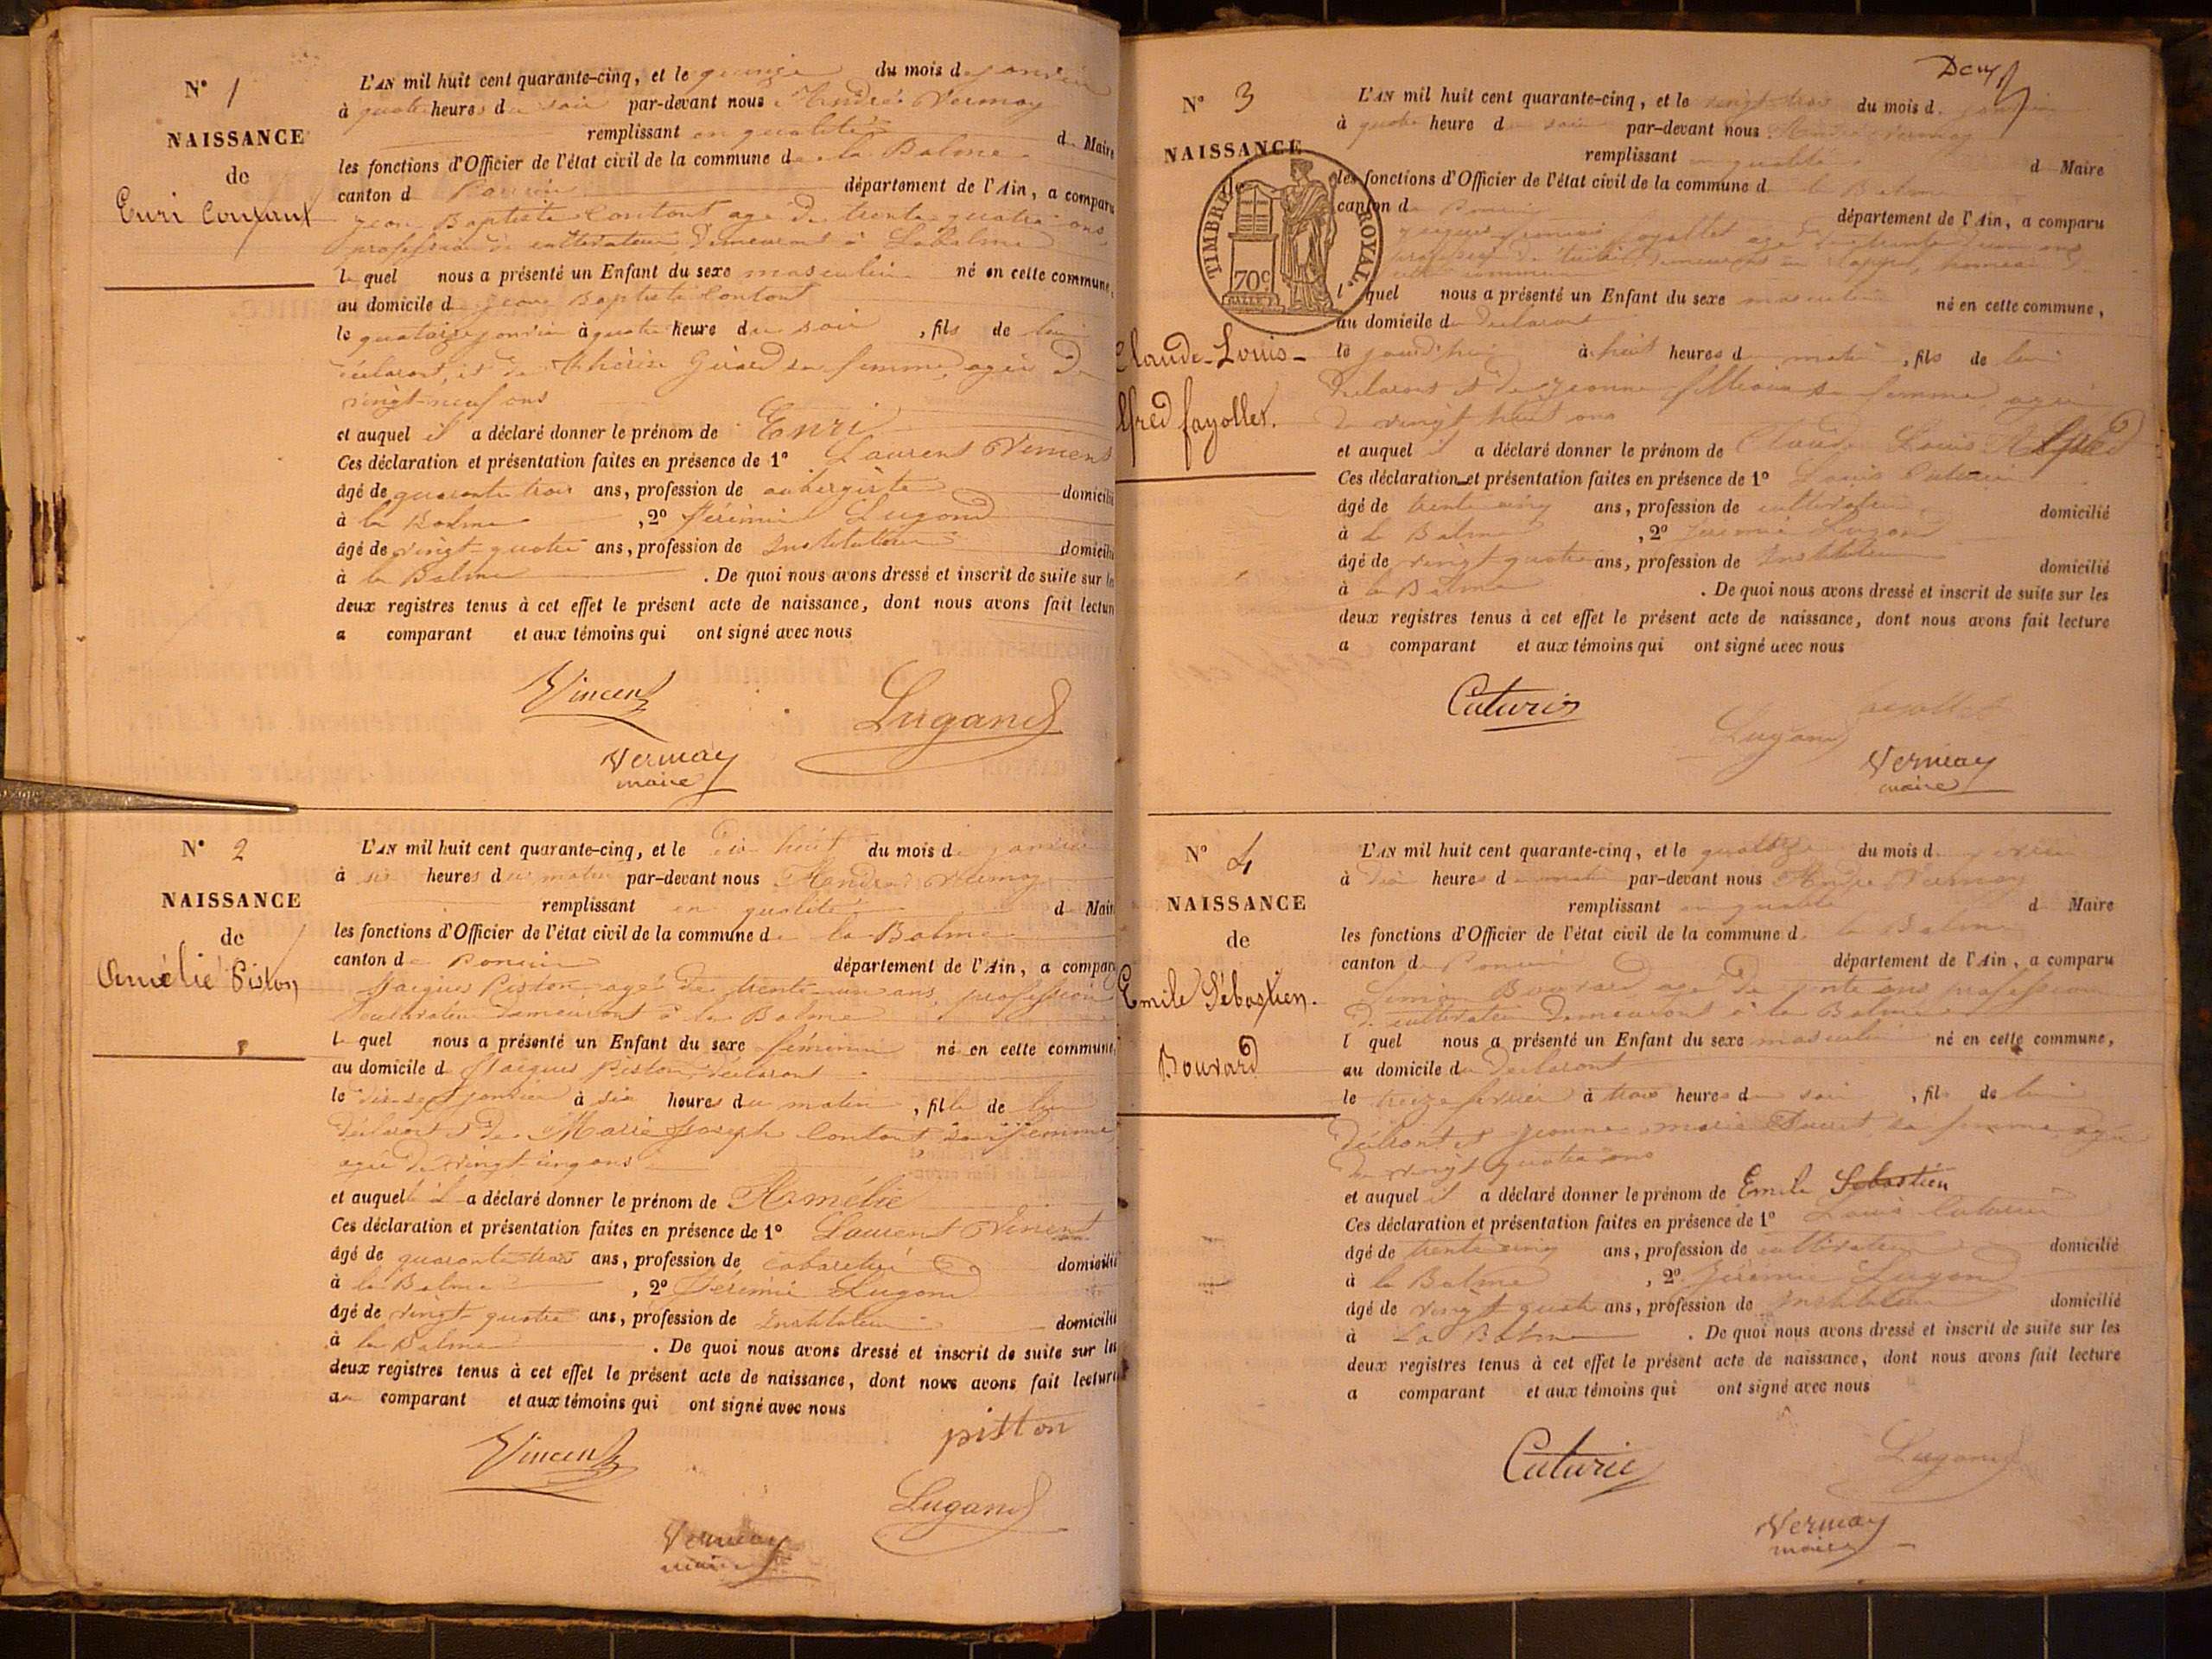 N° 1
NAISSANCE
de
Enri Contant
L'AN mil huit cent quarante-cinq, et le quinze du mois de janvier
à quatre heures du soir par-devant nous André Vernay
remplissant en qualité d Maire
les fonctions d'Officier de l'état civil de la commune de la Balme
canton d Poncin département de l'Ain, a comparu
Jean Baptiste Contant age de trente quatre ans
profession de cultivateur, demeurant à Labalme
le quel nous a présenté un Enfant du sexe masculin né en cette commune,
au domicile de Jean Baptiste Contant
le quatorze janvier à quatre heure du soir, fils de lui
déclarant, et de Thérèse Girard sa femme, agée de
vingt-neuf ans
et auquel il a déclaré donner le prénom de Enri
Ces déclaration et présentation faites en présence de 1° Laurent Vincent
âgé de quarante trois ans, profession de aubergiste domicilié
à la Balme, 2° Jérémie Lugand
âgé de vingt-quatre ans, profession de Instituteur domicilié
à la Balme. De quoi nous avons dressé et inscrit de suite sur les
deux registres tenus à cet effet le présent acte de naissance, dont nous avons fait lecture
a comparant et aux témoins qui ont signé avec nous
Vincent
Lugand
Vernay
maire
N° 2
NAISSANCE
de
Amélie Piston
L'AN mil huit cent quarante-cinq, et le dix huit du mois de janvier
à six heures du matin par-devant nous André Vernay
remplissant en qualité d Maire
les fonctions d'Officier de l'état civil de la commune de la Balme
canton de Poncin département de l'Ain, a comparu
Jacques Piston, agé de trente-un ans, profession
cultivateur demeurant à la Balme
le quel nous a présenté un Enfant du sexe féminin né en cette commune,
au domicile d Jacques Piston, déclarant
le dix-sept janvier à six heures du matin, fille de lui
déclarant et de Marie Joseph Contant sa femme
agée de vingt-cinq ans
et auquelle il a déclaré donner le prénom de Amélie
Ces déclaration et présentation faites en présence de 1° Laurent Vincent
âgé de quarante trois ans, profession de cabaretier domicilié
à la Balme, 2° Jérémie Lugand
âgé de vingt-quatre ans, profession de Instituteur domicilié
à la Balme. De quoi nous avons dressé et inscrit de suite sur les
deux registres tenus à cet effet le présent acte de naissance, dont nous avons fait lecture
au comparant et aux témoins qui ont signé avec nous
piston
Vincent
Lugand
Vernay
maire
Deux
N° 3
NAISSANCE
de
TIMBRE ROYAL
70c
Claude-Louis-
Alfred fayollet.
L'AN mil huit cent quarante-cinq, et le vingt-trois du mois d janvier
à quatre heure du soir par-devant nous André Vernay
remplissant en qualité d Maire
les fonctions d'Officier de l'état civil de la commune d la Balme
canton d Poncin département de l'Ain, a comparu
fayollet agé de trente ans
profession de demeurant hameau de
cette commune
l quel nous a présenté un Enfant du sexe masculin né en cette commune,
au domicile du déclarant
le jourd'hui à huit heures du matin, fils de lui
déclarant et de Jeanne sa femme agée
de vingt huit ans
et auquel il a déclaré donner le prénom de Claude Louis Alfred
Ces déclaration et présentation faites en présence de 1° Louis Cuturier
âgé de trente cinq ans, profession de cultivateur domicilié
à la Balme, 2° Jérémie Lugand
âgé de vingt-quatre ans, profession de Instituteur domicilié
à la Balme. De quoi nous avons dressé et inscrit de suite sur les
deux registres tenus à cet effet le présent acte de naissance, dont nous avons fait lecture
a comparant et aux témoins qui ont signé avec nous
Cuturie
fayollet
Lugand
Vernay
maire
N° 4
NAISSANCE
de
Emile Sébastien.
Bouvard
L'AN mil huit cent quarante-cinq, et le quatorze du mois d février
à dix heures d matin par-devant nous André Vernay
remplissant en qualité d Maire
les fonctions d'Officier de l'état civil de la commune d la Balme
canton d Poncin département de l'Ain, a comparu
Simon Bouvard, agé de trente ans profession
de cultivateur demeurant à la Balme
l quel nous a présenté un Enfant du sexe masculin né en cette commune,
au domicile du déclarant
le treize février à trois heures du soir, fils de lui
déclarant et Jeanne marie sa femme agée
de vingt quatre ans
et auquel il a déclaré donner le prénom de Emile Sébastien
Ces déclaration et présentation faites en présence de 1° Louis Cuturier
âgé de trente cinq ans, profession de cultivateur domicilié
à la Balme, 2° Jérémie Lugand
âgé de vingt-quatre ans, profession de Instituteur domicilié
à La Balme. De quoi nous avons dressé et inscrit de suite sur les
deux registres tenus à cet effet le présent acte de naissance, dont nous avons fait lecture
a comparant et aux témoins qui ont signé avec nous
Cuturie
Lugand
Vernay
maire